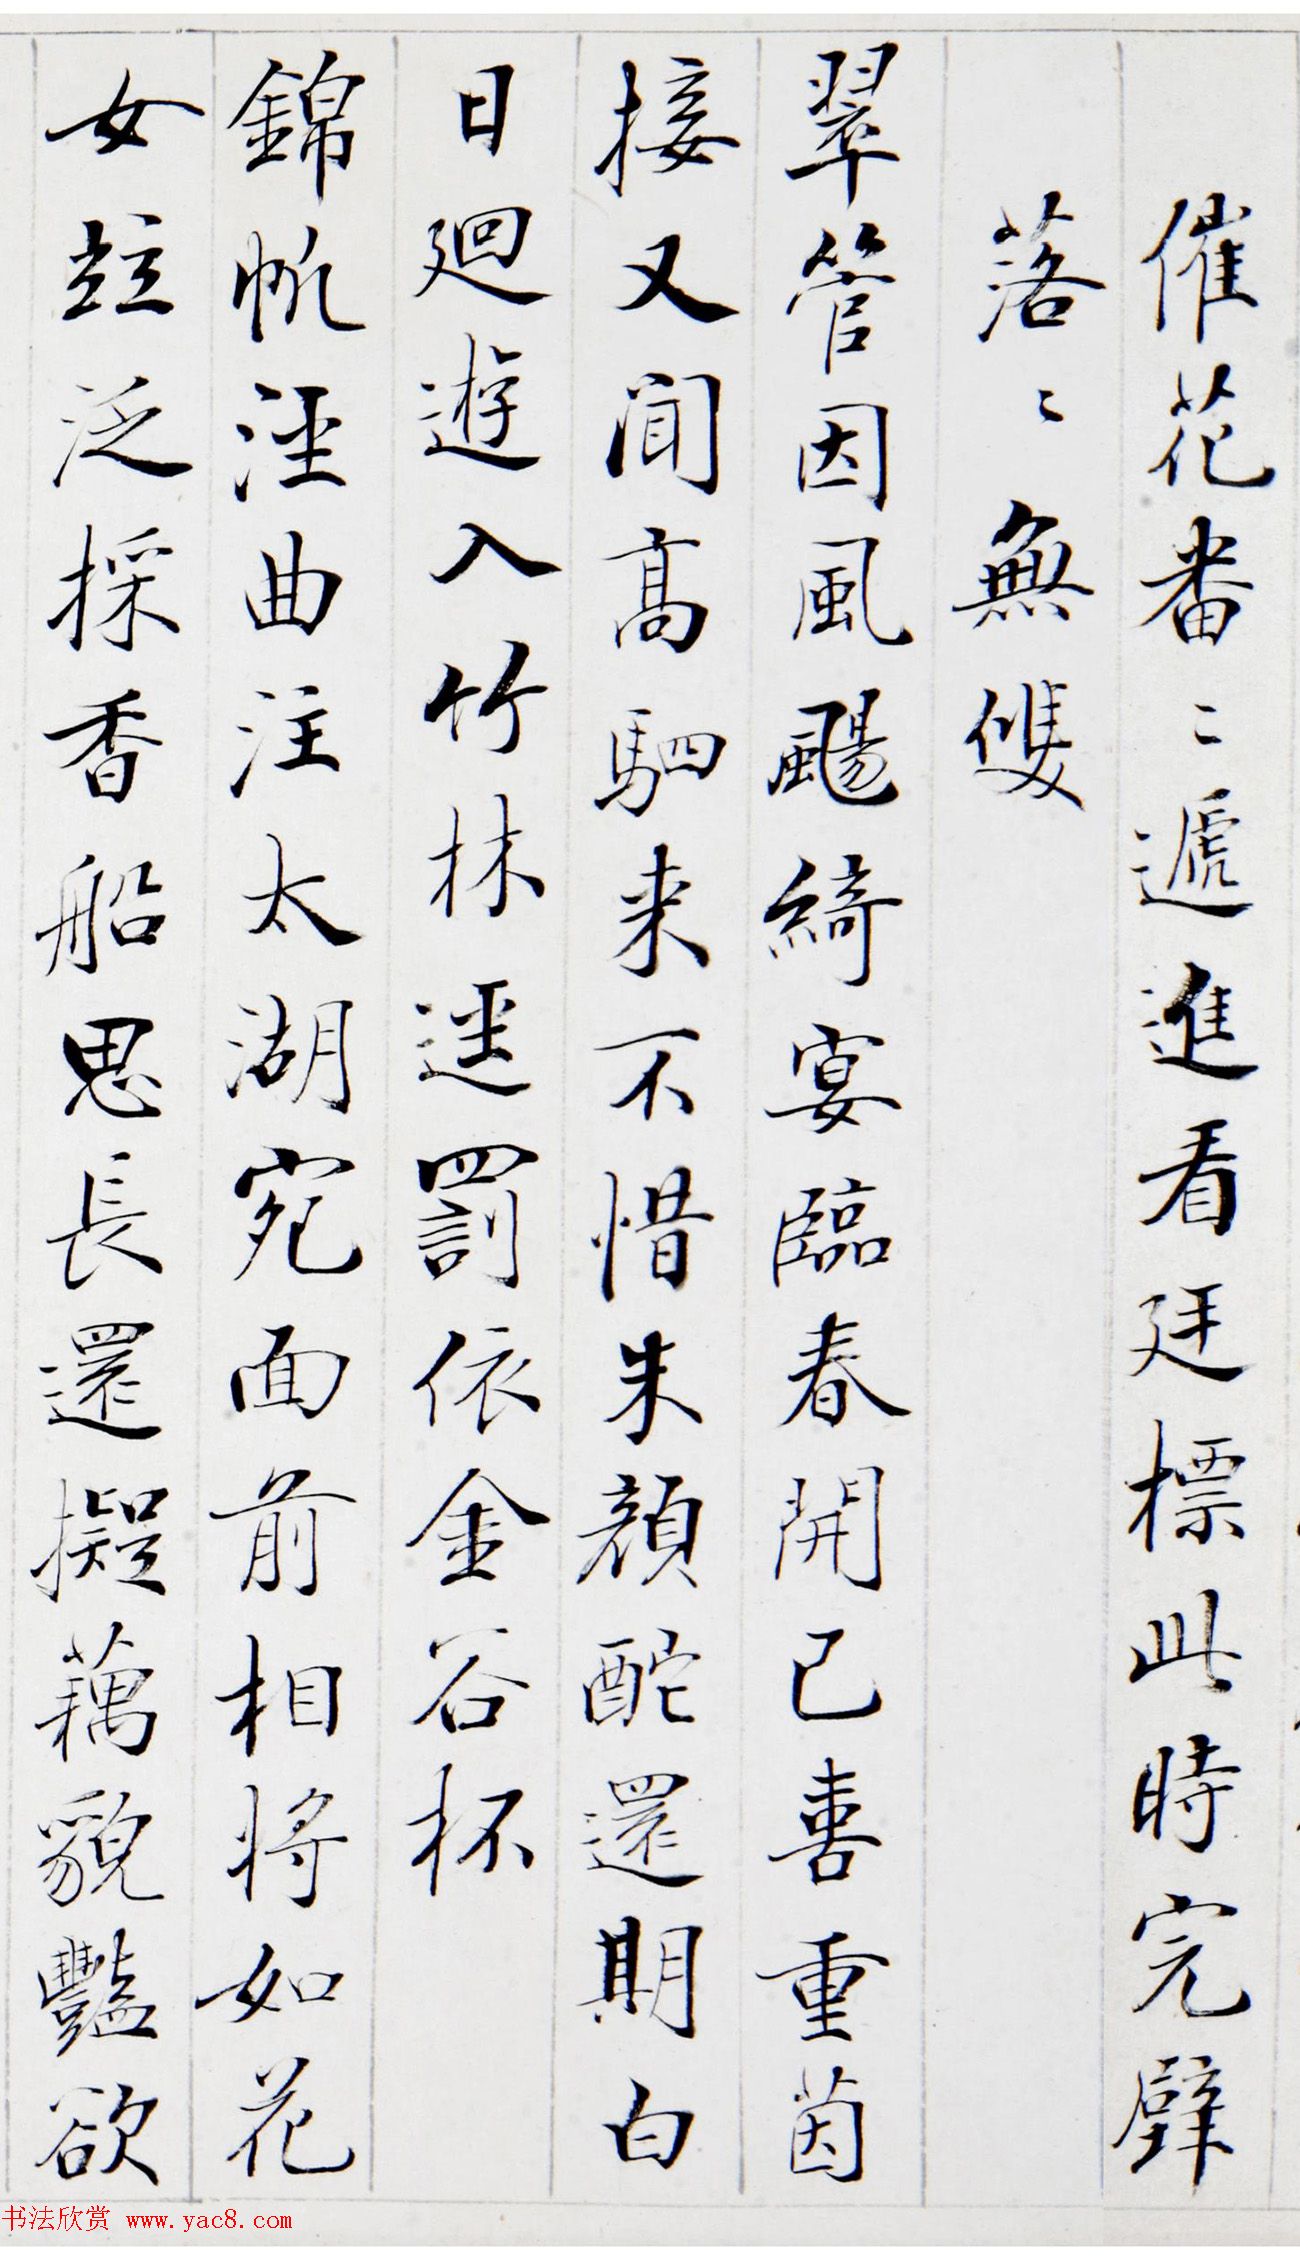 催花番〻遞進看廷標此時完壁
落〻無雙
翠管因風颺綺宴臨春開已喜重茵
接又聞高駟来不惜朱顏酡還期白
日迴遊入竹林逕罰依金谷杯
錦帆涇曲注太湖宛面前相將如花
女竝泛採香船思長還擬藕貌豔欲
书法欣赏 www.yac8.com